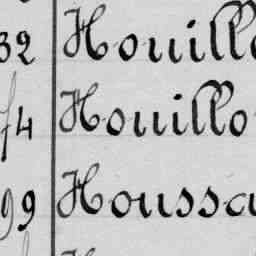 32 Houill
74 Houillo
99 Houssa